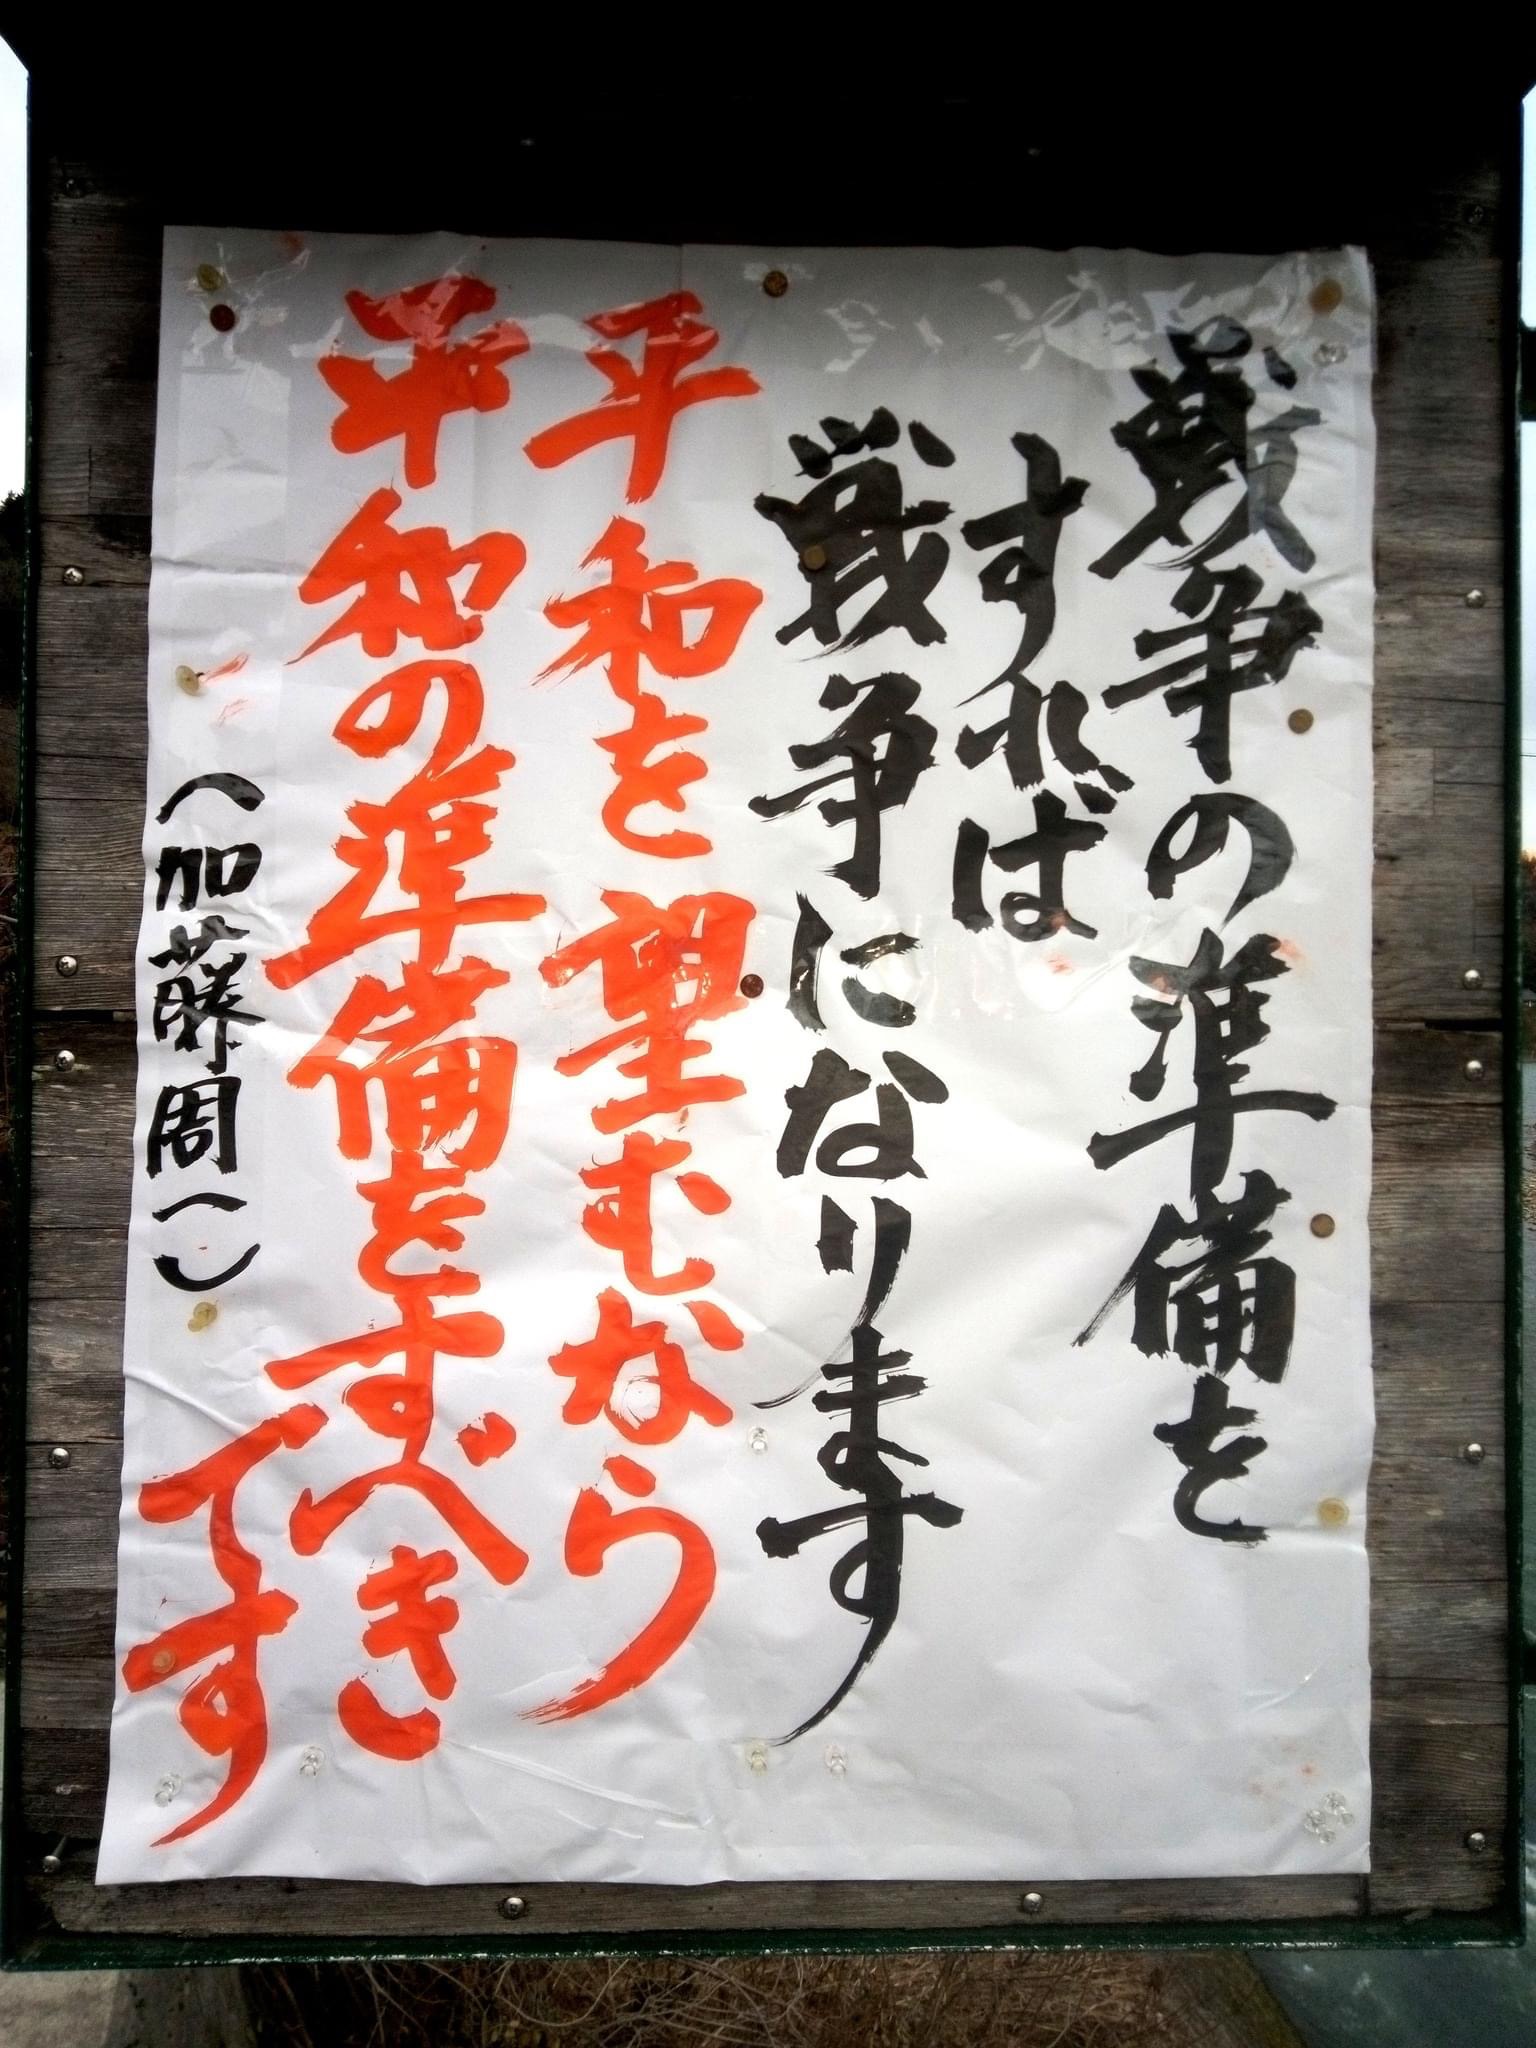 戦争の準備を
すれば
戦争になります
平和を望むなら
平和の準備をすべき
です
(加藤周一)